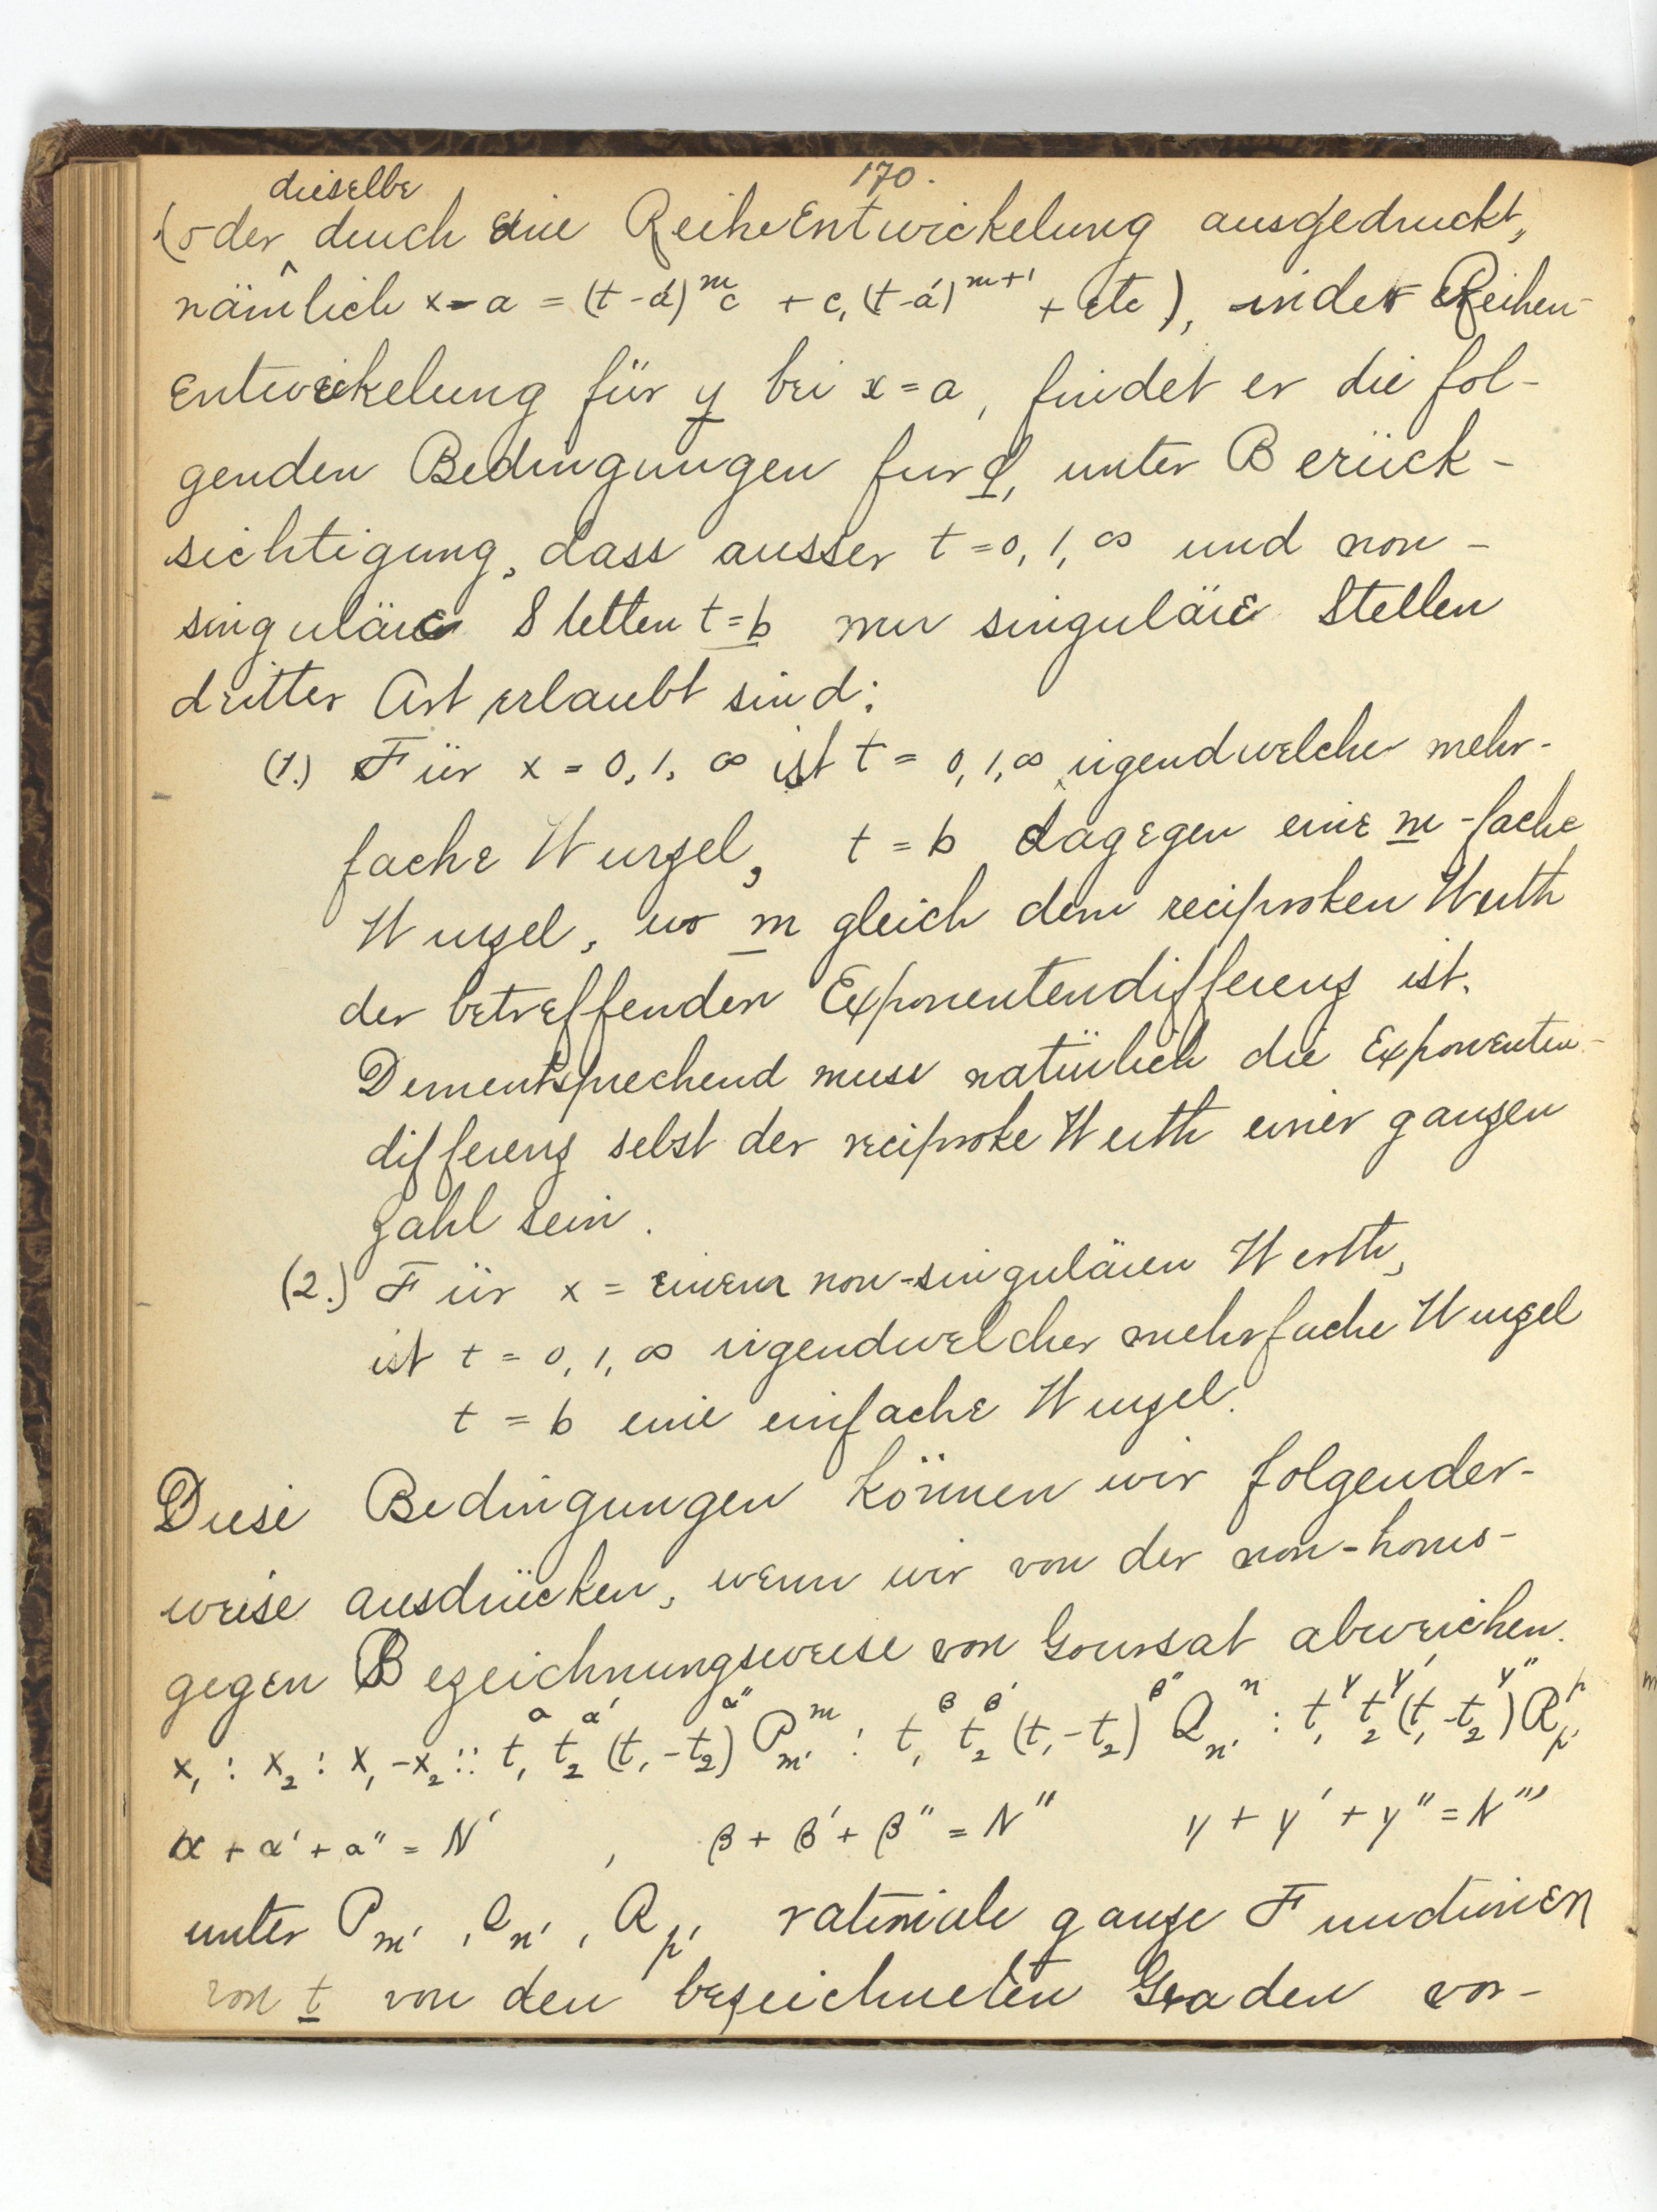 170.
dieselbe
(oder durch eine ReiheEntwickelung ausgedruckt,
nämlich x-a = (t-a')^m c + c, (t-a')^{m+1} + etc), in der Reihen-
Entwickelung für y bei x=a, findet er die fol-
genden Bedingungen fur φ, unter Berück-
sichtigung, dass ausser t=0, 1, ∞ und non-
singuläre Stellen t=b nur singuläre Stellen
dritter Art erlaubt sind:
(1.) Für x = 0, 1, ∞ ist t = 0, 1, ∞ irgendwelcher mehr-
fache Wurzel, t = b dagegen eine m-fache
Wurzel, wo m gleich dem reciproken Werth
der betreffenden Exponentendifferenz ist.
Dementsprechend muss natürlich die Exponenten-
differenz selbst der reciproke Werth einer ganzen
Zahl sein.
(2.) Für x = einem non-singulären Werth,
ist t = 0, 1, ∞ irgendwelcher mehrfache Wurzel
t = b eine einfache Wurzel.
Diese Bedingungen können wir folgender-
weise ausdrücken, wenn wir von der non-homo-
gegen Bezeichnungsweise von Goursat abweichen.
x_1 : x_2 : x_1 - x_2 :: t_1^α t_2^α' (t_1 - t_2)^α'' P_m'^m : t_1^β t_2^β' (t_1 - t_2)^β'' Q_n'^n : t_1^γ t_2^γ' (t_1 - t_2)^γ'' R_p'^p
α + α' + α'' = N' , β + β' + β'' = N'' γ + γ' + γ'' = N'''
unter P_m', Q_n', R_p' rationale ganze Functionen
von t von den bezeichneten Graden vor-